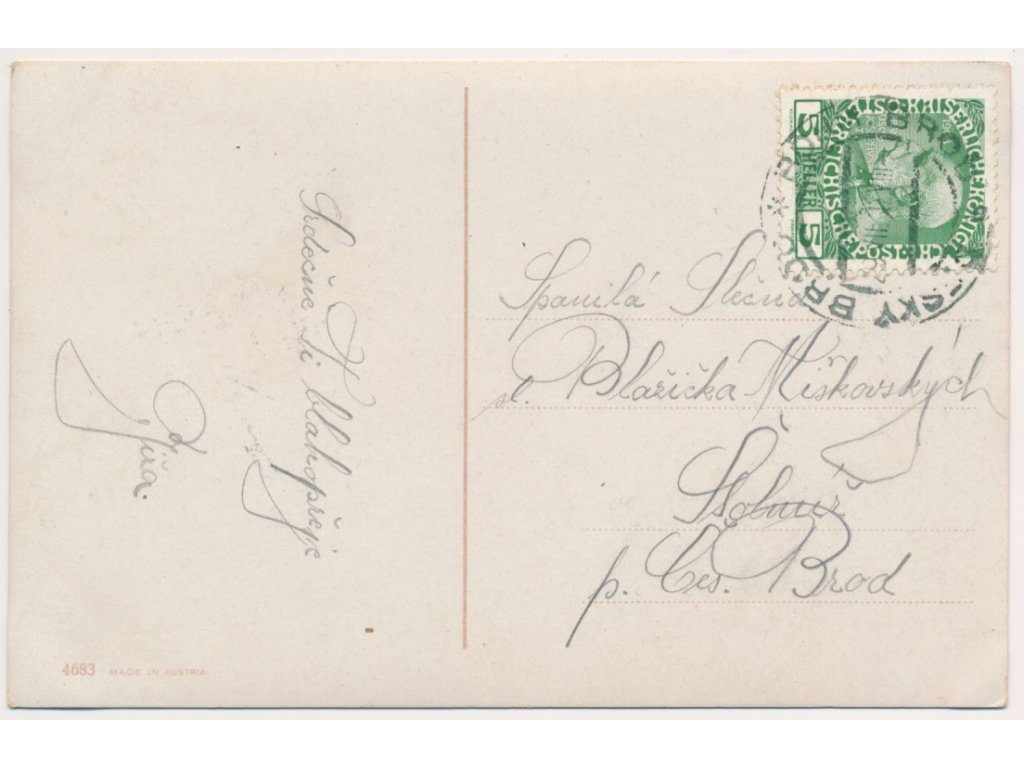 Srdečně Ti blahopřeje
Jiřa.
Spanilá Slečna
sl. Blažička Miškovských
p. Čes. Brod
5 HELLER 5
KAISERLICHEKÖNIGLICHE
ÖSTERREICHISCHE POST
ČESKÝ BROD
BÖHM. BROD
4683 MADE IN AUSTRIA